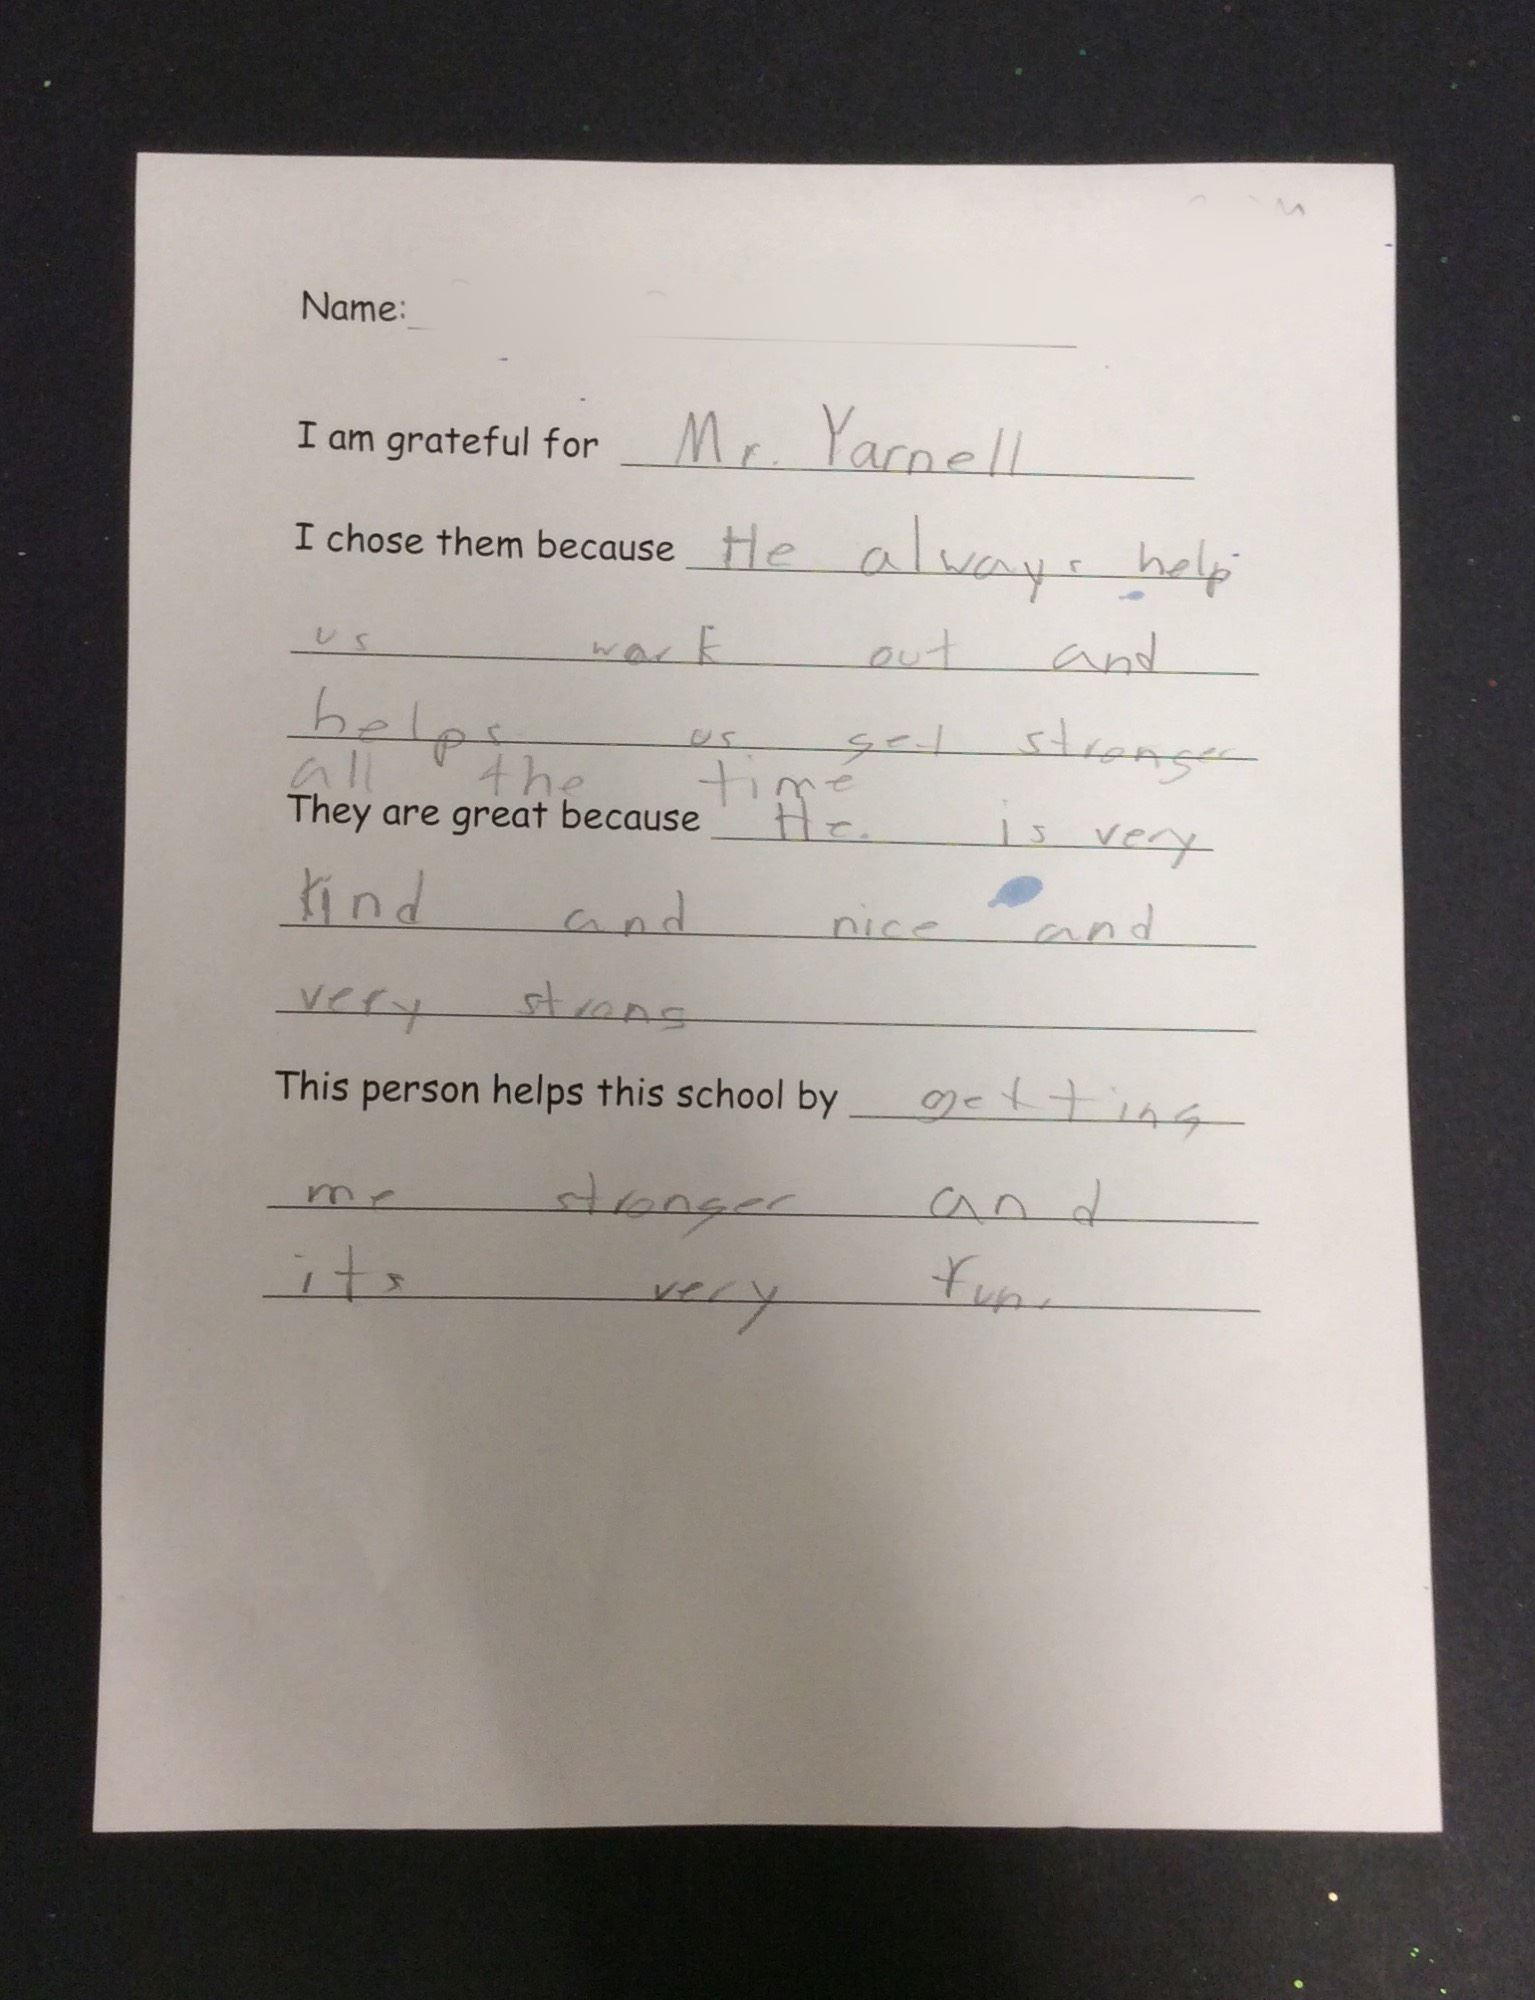 Name:
I am grateful for Mr. Yarnell
I chose them because He always help
us work out and
helps us get stronger
all the time
They are great because He. is very
kind and nice and
very strong
This person helps this school by getting
me stronger and
its very fun.